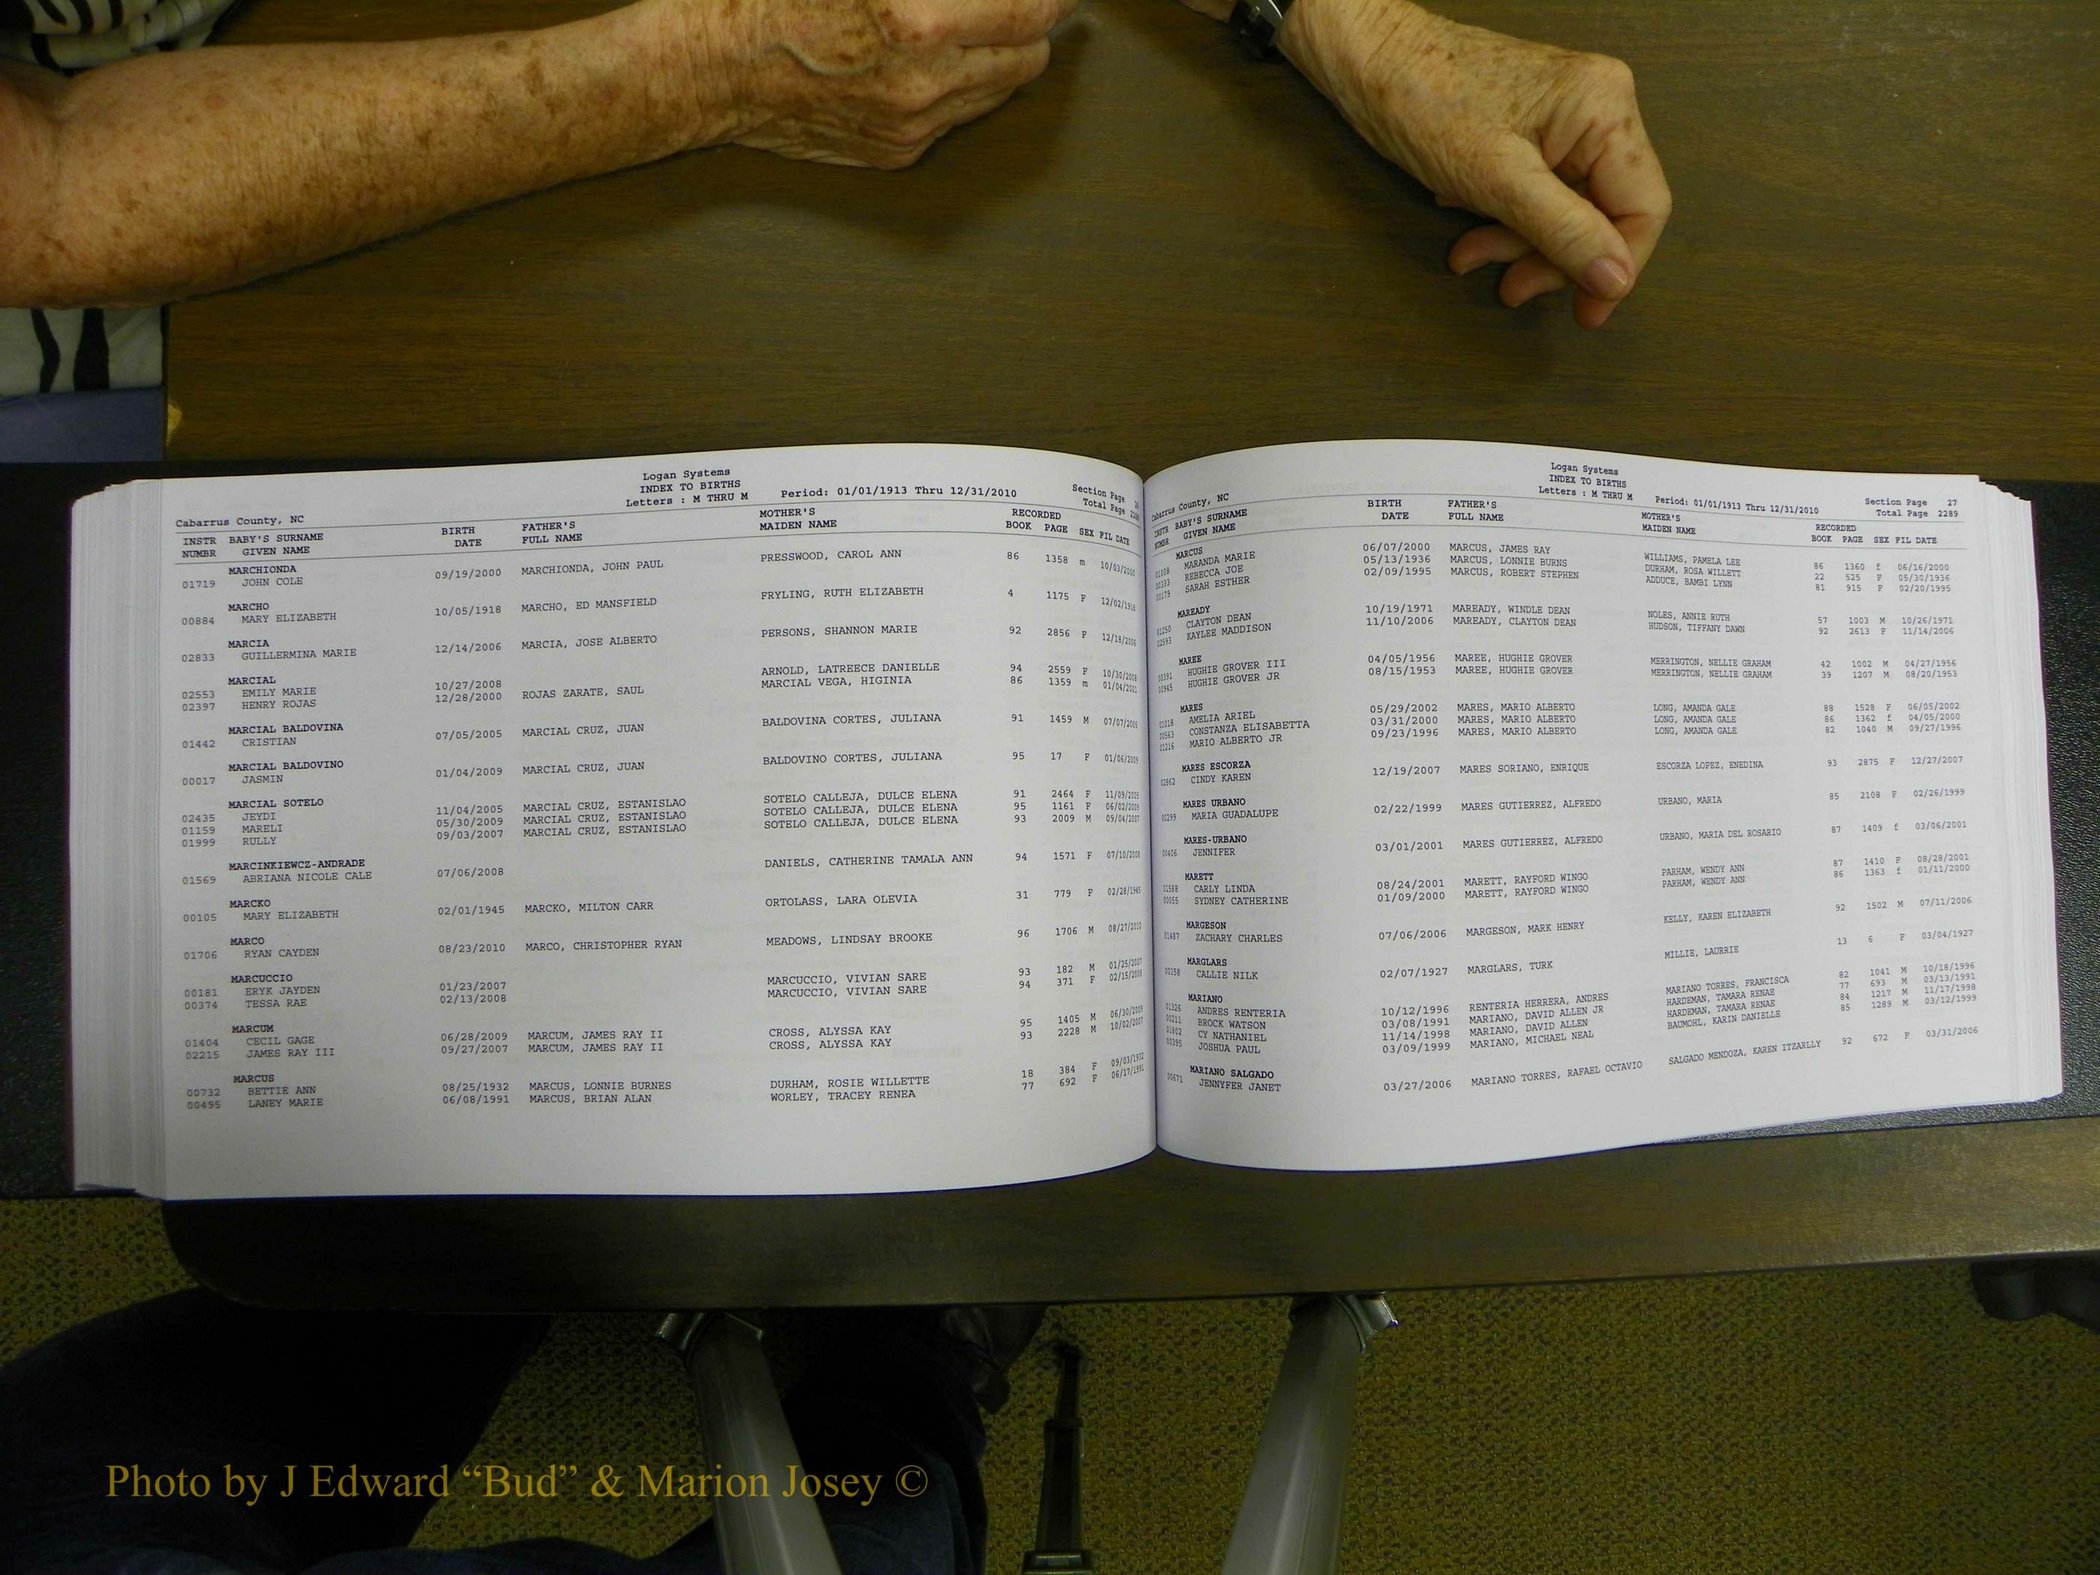 Logan Systems
INDEX TO BIRTHS
Letters : M THRU M
Period: 01/01/1913 Thru 12/31/2010
Section Page
Total Page
Cabarrus County, NC
INSTR BABY'S SURNAME BIRTH FATHER'S MOTHER'S RECORDED
NUMBR GIVEN NAME DATE FULL NAME MAIDEN NAME BOOK PAGE SEX FIL DATE
MARCHIONDA
01719 JOHN COLE 09/19/2000 MARCHIONDA, JOHN PAUL PRESSWOOD, CAROL ANN 86 1358 m 10/03/2000
MARCHO
00884 MARY ELIZABETH 10/05/1918 MARCHO, ED MANSFIELD FRYLING, RUTH ELIZABETH 4 1175 F 12/02/1918
MARCIA
02833 GUILLERMINA MARIE 12/14/2006 MARCIA, JOSE ALBERTO PERSONS, SHANNON MARIE 92 2856 F 12/18/2006
MARCIAL
02553 EMILY MARIE 10/27/2008 ARNOLD, LATREECE DANIELLE 94 2559 F 10/30/2008
02397 HENRY ROJAS 12/28/2000 ROJAS ZARATE, SAUL MARCIAL VEGA, HIGINIA 86 1359 m 01/04/2001
MARCIAL BALDOVINA
01442 CRISTIAN 07/05/2005 MARCIAL CRUZ, JUAN BALDOVINA CORTES, JULIANA 91 1459 M 07/07/2005
MARCIAL BALDOVINO
00017 JASMIN 01/04/2009 MARCIAL CRUZ, JUAN BALDOVINO CORTES, JULIANA 95 17 F 01/06/2009
MARCIAL SOTELO
02435 JEYDI 11/04/2005 MARCIAL CRUZ, ESTANISLAO SOTELO CALLEJA, DULCE ELENA 91 2464 F 11/09/2005
01159 MARELI 05/30/2009 MARCIAL CRUZ, ESTANISLAO SOTELO CALLEJA, DULCE ELENA 95 1161 F 06/02/2009
01999 RULLY 09/03/2007 MARCIAL CRUZ, ESTANISLAO SOTELO CALLEJA, DULCE ELENA 93 2009 M 09/04/2007
MARCINKIEWCZ-ANDRADE
01569 ABRIANA NICOLE CALE 07/06/2008 DANIELS, CATHERINE TAMALA ANN 94 1571 F 07/10/2008
MARCKO
00105 MARY ELIZABETH 02/01/1945 MARCKO, MILTON CARR ORTOLASS, LARA OLEVIA 31 779 F 02/28/1945
MARCO
01706 RYAN CAYDEN 08/23/2010 MARCO, CHRISTOPHER RYAN MEADOWS, LINDSAY BROOKE 96 1706 M 08/27/2010
MARCUCCIO
00181 ERYK JAYDEN 01/23/2007 MARCUCCIO, VIVIAN SARE 93 182 M 01/25/2007
00374 TESSA RAE 02/13/2008 MARCUCCIO, VIVIAN SARE 94 371 F 02/15/2008
MARCUM
01404 CECIL GAGE 06/28/2009 MARCUM, JAMES RAY II CROSS, ALYSSA KAY 95 1405 M 06/30/2009
02215 JAMES RAY III 09/27/2007 MARCUM, JAMES RAY II CROSS, ALYSSA KAY 93 2228 M 10/02/2007
MARCUS
00732 BETTIE ANN 08/25/1932 MARCUS, LONNIE BURNES DURHAM, ROSIE WILLETTE 18 384 F 09/03/1932
00495 LANEY MARIE 06/08/1991 MARCUS, BRIAN ALAN WORLEY, TRACEY RENEA 77 692 F 06/17/1991
Logan Systems
INDEX TO BIRTHS
Letters : M THRU M
Period: 01/01/1913 Thru 12/31/2010
Section Page 27
Total Page 2289
Cabarrus County, NC
INSTR BABY'S SURNAME BIRTH FATHER'S MOTHER'S RECORDED
NUMBR GIVEN NAME DATE FULL NAME MAIDEN NAME BOOK PAGE SEX FIL DATE
MARCUS
01008 MARANDA MARIE 06/07/2000 MARCUS, JAMES RAY WILLIAMS, PAMELA LEE 86 1360 f 06/16/2000
00333 REBECCA JOE 05/13/1936 MARCUS, LONNIE BURNS DURHAM, ROSA WILLETT 22 525 F 05/30/1936
00179 SARAH ESTHER 02/09/1995 MARCUS, ROBERT STEPHEN ADDUCE, BAMBI LYNN 81 915 F 02/20/1995
MAREADY
01250 CLAYTON DEAN 10/19/1971 MAREADY, WINDLE DEAN NOLES, ANNIE RUTH 57 1003 M 10/26/1971
02593 KAYLEE MADDISON 11/10/2006 MAREADY, CLAYTON DEAN HUDSON, TIFFANY DAWN 92 2613 F 11/14/2006
MAREE
00391 HUGHIE GROVER III 04/05/1956 MAREE, HUGHIE GROVER MERRINGTON, NELLIE GRAHAM 42 1002 M 04/27/1956
00945 HUGHIE GROVER JR 08/15/1953 MAREE, HUGHIE GROVER MERRINGTON, NELLIE GRAHAM 39 1207 M 08/20/1953
MARES
01018 AMELIA ARIEL 05/29/2002 MARES, MARIO ALBERTO LONG, AMANDA GALE 88 1528 F 06/05/2002
00563 CONSTANZA ELISABETTA 03/31/2000 MARES, MARIO ALBERTO LONG, AMANDA GALE 86 1362 f 04/05/2000
01216 MARIO ALBERTO JR 09/23/1996 MARES, MARIO ALBERTO LONG, AMANDA GALE 82 1040 M 09/27/1996
MARES ESCORZA
02862 CINDY KAREN 12/19/2007 MARES SORIANO, ENRIQUE ESCORZA LOPEZ, ENEDINA 93 2875 F 12/27/2007
MARES URBANO
00299 MARIA GUADALUPE 02/22/1999 MARES GUTIERREZ, ALFREDO URBANO, MARIA 85 2108 F 02/26/1999
MARES-URBANO
00406 JENNIFER 03/01/2001 MARES GUTIERREZ, ALFREDO URBANO, MARIA DEL ROSARIO 87 1409 f 03/06/2001
MARETT
01588 CARLY LINDA 08/24/2001 MARETT, RAYFORD WINGO PARHAM, WENDY ANN 87 1410 F 08/28/2001
00055 SYDNEY CATHERINE 01/09/2000 MARETT, RAYFORD WINGO PARHAM, WENDY ANN 86 1363 f 01/11/2000
MARGESON
01487 ZACHARY CHARLES 07/06/2006 MARGESON, MARK HENRY KELLY, KAREN ELIZABETH 92 1502 M 07/11/2006
MARGLARS
00158 CALLIE NILK 02/07/1927 MARGLARS, TURK MILLIE, LAURRIE 13 6 F 03/04/1927
MARIANO
01326 ANDRES RENTERIA 10/12/1996 RENTERIA HERRERA, ANDRES MARIANO TORRES, FRANCISCA 82 1041 M 10/18/1996
00211 BROCK WATSON 03/08/1991 MARIANO, DAVID ALLEN JR HARDEMAN, TAMARA RENAE 77 693 M 03/13/1991
01802 CY NATHANIEL 11/14/1998 MARIANO, DAVID ALLEN HARDEMAN, TAMARA RENAE 84 1217 M 11/17/1998
00395 JOSHUA PAUL 03/09/1999 MARIANO, MICHAEL NEAL BAUMOHL, KARIN DANIELLE 85 1289 M 03/12/1999
MARIANO SALGADO
00671 JENNYFER JANET 03/27/2006 MARIANO TORRES, RAFAEL OCTAVIO SALGADO MENDOZA, KAREN ITZARLLY 92 672 F 03/31/2006
Photo by J Edward “Bud” & Marion Josey ©